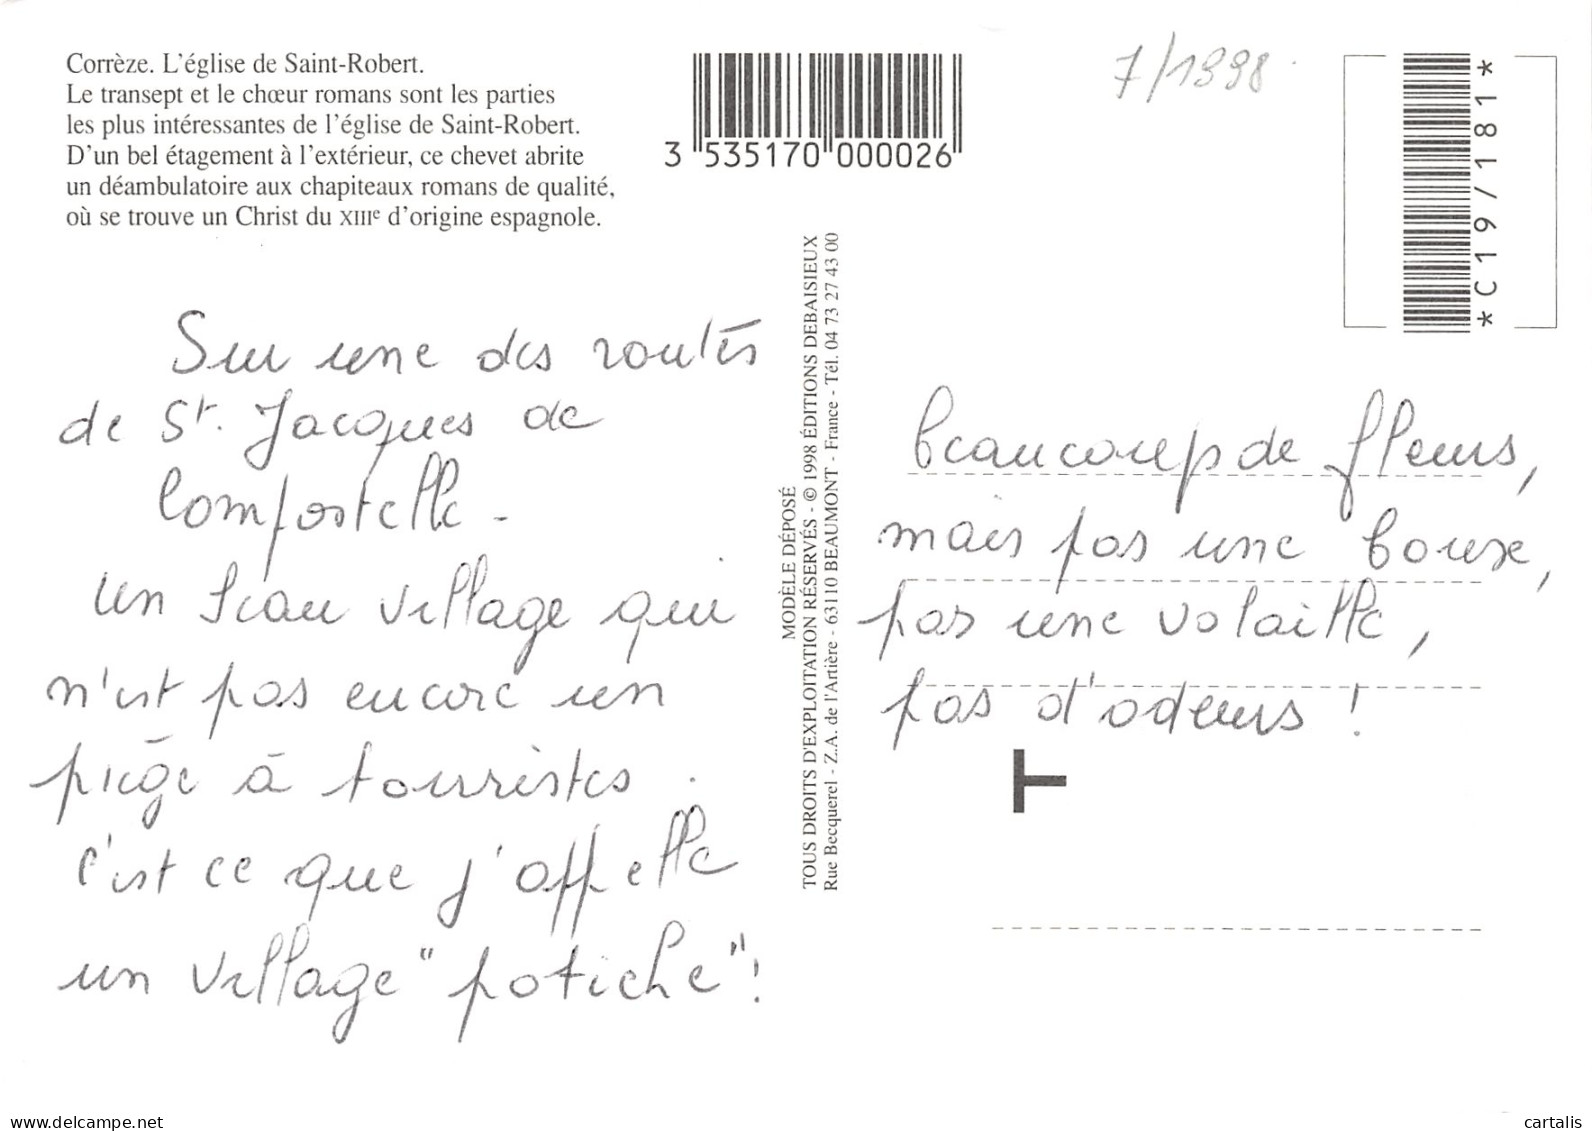 Corrèze. L'église de Saint-Robert.
Le transept et le chœur romans sont les parties
les plus intéressantes de l'église de Saint-Robert.
D'un bel étagement à l'extérieur, ce chevet abrite
un déambulatoire aux chapiteaux romans de qualité,
où se trouve un Christ du XIIIe d'origine espagnole.
3 535170 000026
7/1998
*C19/181*
Sur une des routes
de St. Jacques de
Compostelle -
un beau village qui
n'est pas encore un
piège à touristes.
C'est ce que j'appelle
un village "potiche"!
MODÈLE DÉPOSÉ
TOUS DROITS D'EXPLOITATION RÉSERVÉS - © 1998 ÉDITIONS DEBAISIEUX
Rue Becquerel - Z.A. de l'Artière - 63110 BEAUMONT - France - Tél. 04 73 27 43 00
beaucoup de fleurs,
mais pas une bouse,
pas une volaille,
pas d'odeurs !
T
www.delcampe.net
cartalis